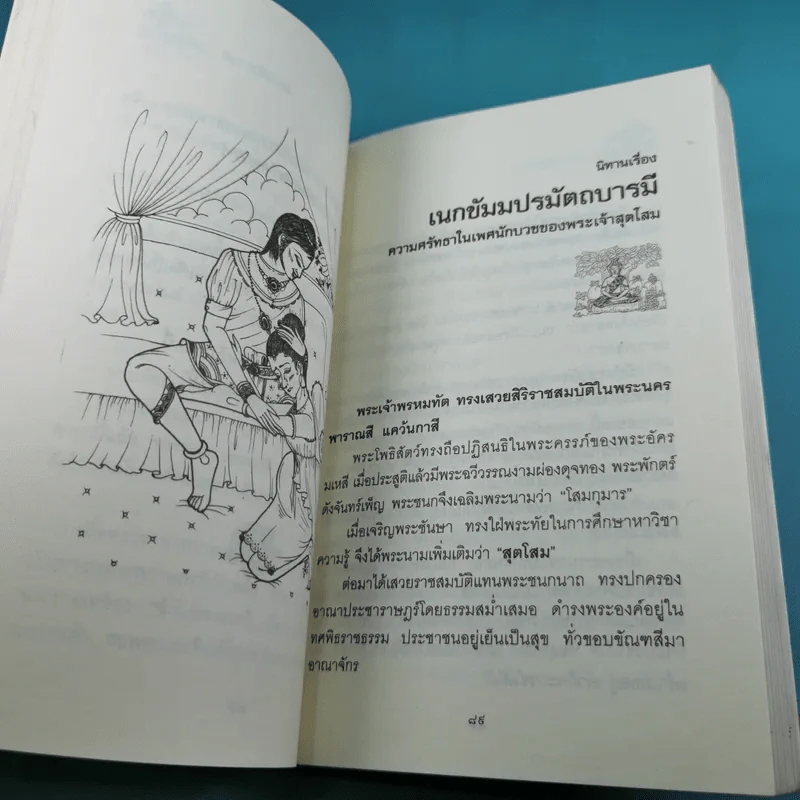 นิทานเรื่อง
เนกขัมมปรมัตถบารมี
ความศรัทธาในเพศนักบวชของพระเจ้าสุตโสม
พระเจ้าพรหมทัต ทรงเสวยสิริราชสมบัติในพระนคร
พาราณสี แคว้นกาสี
พระโพธิสัตว์ทรงถือปฏิสนธิในพระครรภ์ของพระอัคร
มเหสี เมื่อประสูติแล้วมีพระฉวีวรรณงามผ่องดุจทอง พระพักตร์
ดังจันทร์เพ็ญ พระชนกจึงเฉลิมพระนามว่า “โสมกุมาร”
เมื่อเจริญพระชันษา ทรงใฝ่พระทัยในการศึกษาหาวิชา
ความรู้ จึงได้พระนามเพิ่มเติมว่า “สุตโสม”
ต่อมาได้เสวยราชสมบัติแทนพระชนกนาถ ทรงปกครอง
อาณาประชาราษฎร์โดยธรรมสม่ำเสมอ ดำรงพระองค์อยู่ใน
ทศพิธราชธรรม ประชาชนอยู่เย็นเป็นสุข ทั่วขอบขัณฑสีมา
อาณาจักร
๘๙